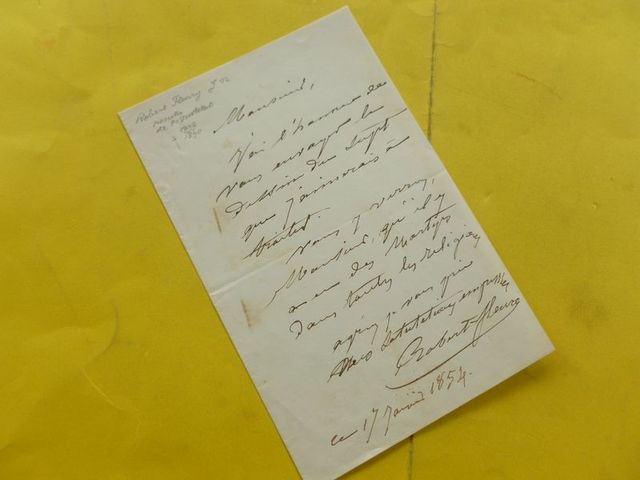 Robert Fleury
Monsieur,
J'ai l'honneur de
vous envoyer le
dessin du sujet
que j'aimerais à
traiter.
Vous y verrez,
Monsieur, qu'il y
a eu des Martyrs
dans toutes les religions
agréez je vous prie
mes salutations empressées
Robert Fleury
ce 17 1854.